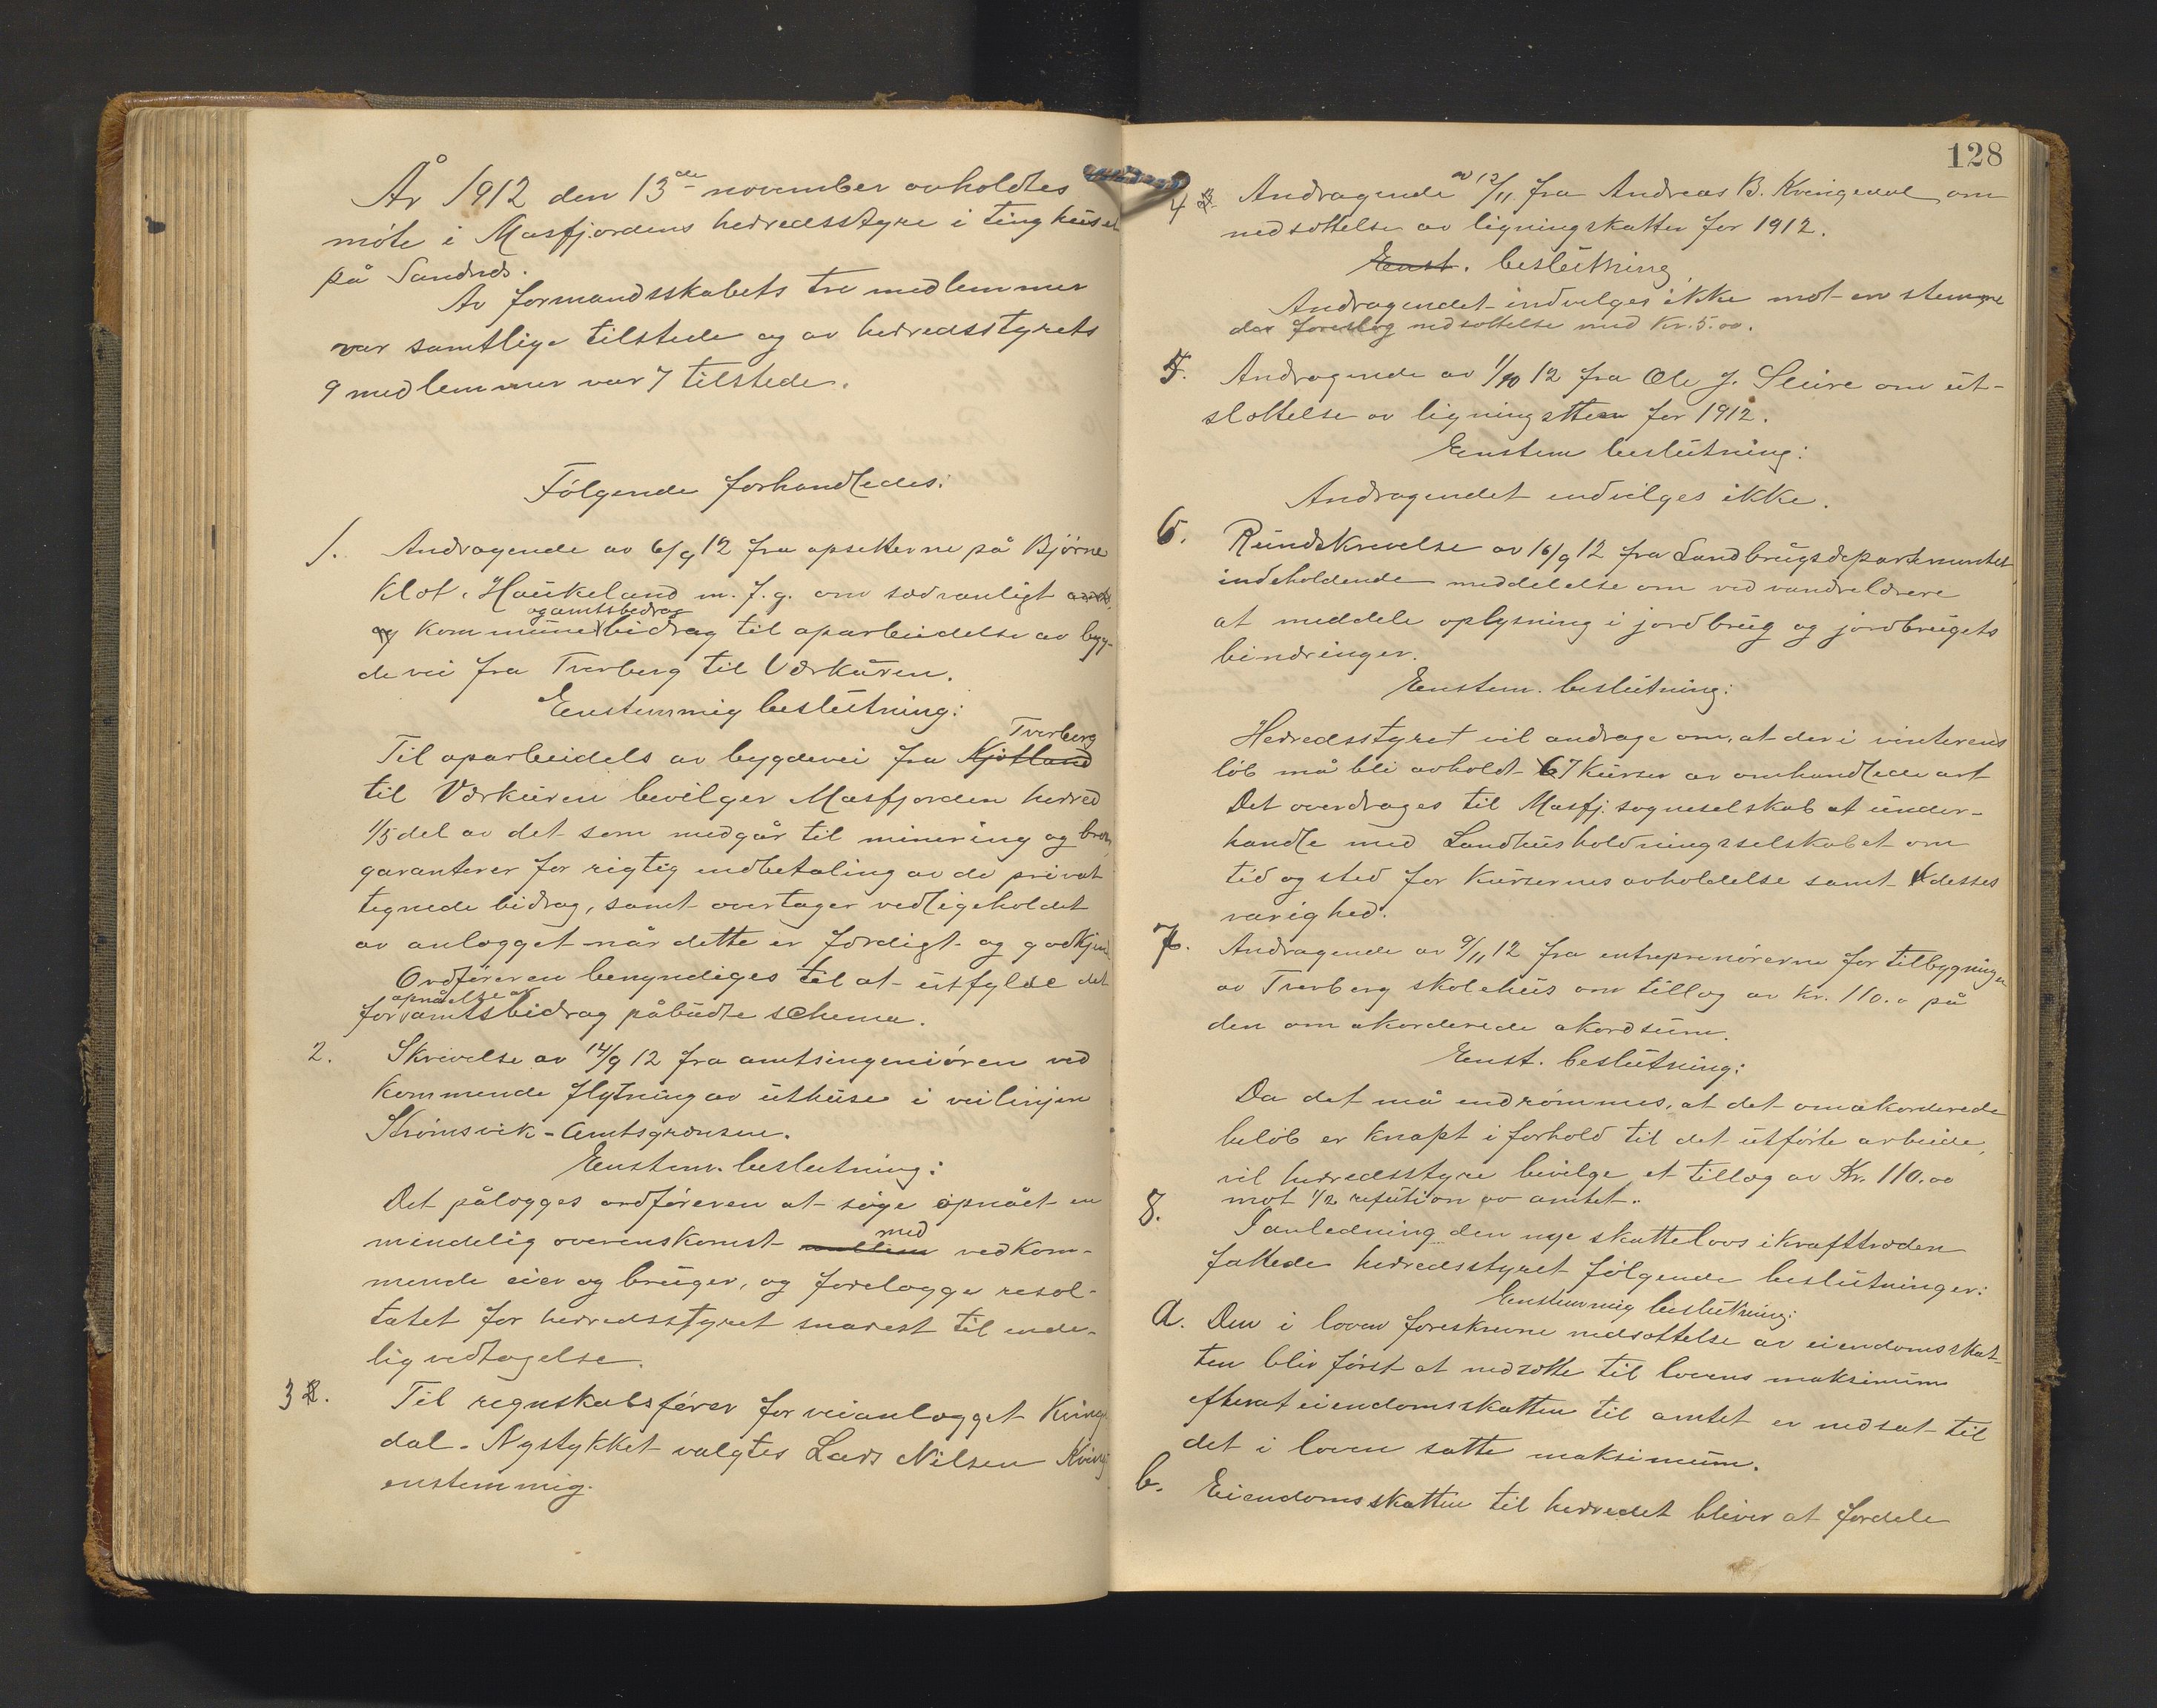 År 1912 den 13de november avholdtes
møte i Masfjordens herredsstyre i tinghuset
på Sandnes.
Av formandsskabets tre medlemmer
var samtlige tilstede og av herredsstyrets
9 medlemmer var 7 tilstede.
Følgende forhandledes:
1. Andragende av 6/9 12 fra opsitterne på Bjørne
klot, Haukeland m. f. g. om sedvanligt
og amtsbedrag
og kommunebidrag til oparbeidelse av byg-
devei fra Tverberg til Værkuren.
Enstemmig beslutning:
Tverberg
Til oparbeidels av bygdevei fra Kjetland
til Værkuren bevilger Masfjorden herred
1/5 del av det som medgår til minering og broer,
garanterer for rigtig indbetaling av de privat
tegnede bidrag, samt overtager vedligeholdet
av anlægget når dette er færdigt og godkjend.
Ordføreren bemyndiges til at utfylde det
opnåelse av
for amtsbidrag påbudte schema.
2. Skrivelse av 14/9 12 fra amtsingeniøren ved
kommende flytning av uthuse i veilinjen
Strømsvik - Amtsgrænsen.
Enstem. beslutning:
Det pålægges ordføreren at søge opnået en
med
mindelig overenskomst mellem vedkom-
mende eier og bruger, og forelægge resol-
tatet for herredsstyret snarest til ende-
lig vedtagelse.
3. Til regnskabsfører for veianlægget Kvinge
dal - Nystykket valgtes Lars Nilsen Kving
enstemmig.
128
4 Andragende av 12/11 fra Andreas B. Kvingedal om
nedsættelse av ligningskatten for 1912.
Enst. beslutning
Andragendet indvilges ikke mot en stemme
der foreslog nedsættelse med Kr. 5.00.
5. Andragende av 1/10 12 fra Ole J. Sleire om ut-
slættelse av ligningstten for 1912.
Enstem beslutning:
Andragendet indvilges ikke.
6. Rundskrivelse av 16/9 12 fra Landbrugsdepartementet
indeholdende meddelelse om ved vandrelærere
at meddele oplysning i jordbrug og jordbrugets
binæringer.
Enstem. beslutning:
Herredsstyret vil andrage om, at der i vinterens
løb må bli avholdt 7 kurser av omhandlede art
Det overdrages til Masfj. sogneselskab at under-
handle med Landhusholdningsselskabet om
tid og sted for kursernes avholdelse samt desses
varighed.
7. Andragende av 9/11 12 fra entreprenørerne for tilbygningen
av Tverberg skolehus om tillæg av kr. 110.0 på
den om akorderede akordsum.
Enst. beslutning:
Da det må indrømmes, at det omakorderede
beløb er knapt i forhold til det utførte arbeide,
vil herredsstyre bevilge et tillæg av Kr. 110.00
mot 1/2 refution av amtet.
8. I anledning den nye skattelovs ikrafttræden
fattede herredsstyret følgende beslutninger:
Enstemmig beslutning:
a. Den i loven foreskrevne nedsættelse av eiendomsskat-
ten blir først at nedsætte til lovens maksimum
efterat eiendomsskatten til amtet er nedsat til
det i loven satte maksimum.
b. Eiendomsskatten til herredet bliver at fordele